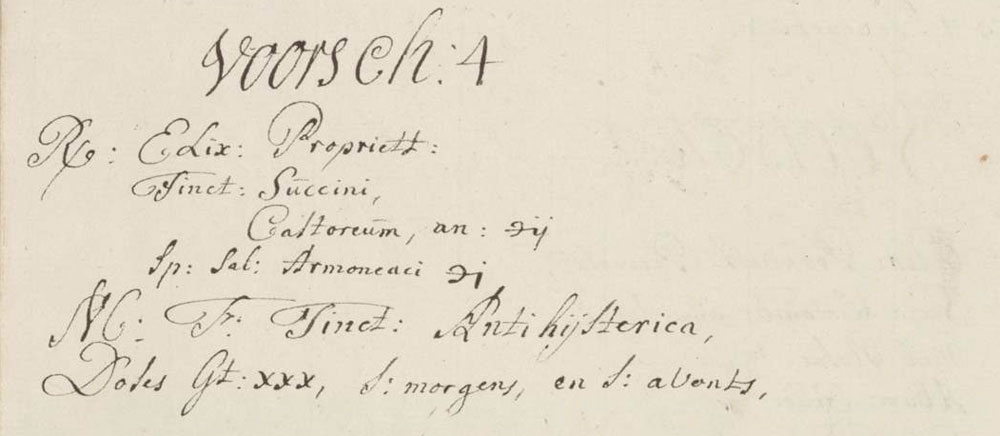 Voorsch: 4
Rx: Elix: Propriett:
Tinct: Sūccini,
Castoreūm, an: ℈ij
Sp: Sal: Armoneaci ℈j
M: F: Tinct: Antihijsterica,
Doses Gt: xxx, S: morgens, en S: avonts,